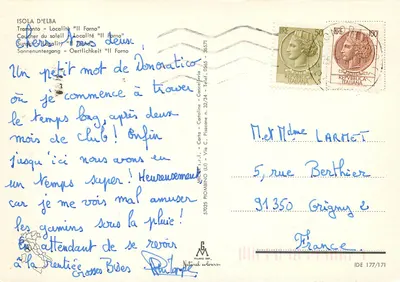 ISOLA D'ELBA
Tramonto - Località "Il Forno"
Coucher du soleil - Localité "Il Forno"
Sonnenuntergang - Oertlichkeit "Il Forno"
Chers tous deux !
Un petit mot de Donoratico
où je commence à trouver
le temps long, après deux
mois de club ! Enfin
jusqu'ici nous avons eu
un temps super ! Heureusement
car je me vois mal amuser
les gamins sous la pluie !
En attendant de se revoir
à la rentrée
Grosses Bises
57025 PIOMBINO (LI)
M et Mme LARMET
5, rue Berthier
91350 Grigny
France
IDE 177/171